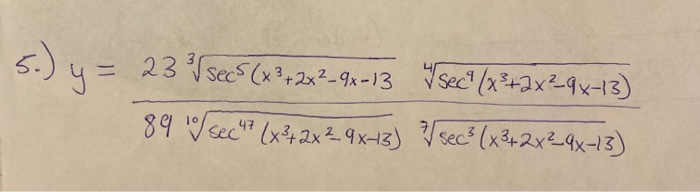 5.) y = 23 ∛sec⁵(x³+2x²-9x-13 ∜sec⁹(x³+2x²-9x-13)
89 ¹⁰√sec⁴⁷(x³+2x²-9x-13) ⁷√sec³(x³+2x²-9x-13)